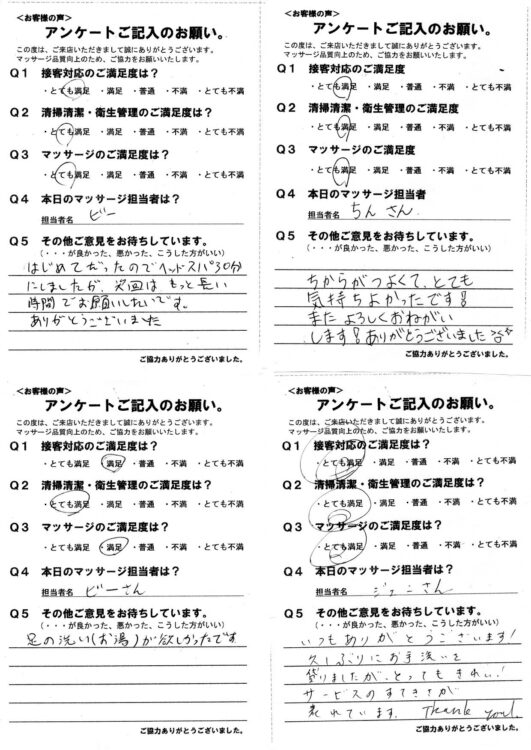 ＜お客様の声＞
アンケートご記入のお願い。
この度は、ご来店いただきまして誠にありがとうございます。
マッサージ品質向上のため、ご協力をお願いいたします。
Q1 接客対応のご満足度は？
・とても満足 ・満足 ・普通 ・不満 ・とても不満
Q2 清掃清潔・衛生管理のご満足度は？
・とても満足 ・満足 ・普通 ・不満 ・とても不満
Q3 マッサージのご満足度は？
・とても満足 ・満足 ・普通 ・不満 ・とても不満
Q4 本日のマッサージ担当者は？
担当者名 ビー
Q5 その他ご意見をお待ちしています。
（・・・が良かった、悪かった、こうした方がいい）
はじめてだったのでヘッドスパ30分
にしましたが、次回は もっと長い
時間でお願いしたいです。
ありがとうございました
ご協力ありがとうございました。
＜お客様の声＞
アンケートご記入のお願い。
この度は、ご来店いただきまして誠にありがとうございます。
マッサージ品質向上のため、ご協力をお願いいたします。
Q1 接客対応のご満足度
・とても満足 ・満足 ・普通 ・不満 ・とても不満
Q2 清掃清潔・衛生管理のご満足度
・とても満足 ・満足 ・普通 ・不満 ・とても不満
Q3 マッサージのご満足度
・とても満足 ・満足 ・普通 ・不満 ・とても不満
Q4 本日のマッサージ担当者
担当者名 ちん さん
Q5 その他ご意見をお待ちしています。
（・・・が良かった、悪かった、こうした方がいい）
ちからがつよくて、とても
気持ちよかったです！
またよろしくおねがい
します！ありがとうございました
ご協力ありがとうございました。
＜お客様の声＞
アンケートご記入のお願い。
この度は、ご来店いただきまして誠にありがとうございます。
マッサージ品質向上のため、ご協力をお願いいたします。
Q1 接客対応のご満足度は？
・とても満足 ・満足 ・普通 ・不満 ・とても不満
Q2 清掃清潔・衛生管理のご満足度は？
・とても満足 ・満足 ・普通 ・不満 ・とても不満
Q3 マッサージのご満足度は？
・とても満足 ・満足 ・普通 ・不満 ・とても不満
Q4 本日のマッサージ担当者は？
担当者名 ビーさん
Q5 その他ご意見をお待ちしています。
（・・・が良かった、悪かった、こうした方がいい）
足の洗い(お湯)が欲しかったです
ご協力ありがとうございました。
＜お客様の声＞
アンケートご記入のお願い。
この度は、ご来店いただきまして誠にありがとうございます。
マッサージ品質向上のため、ご協力をお願いいたします。
Q1 接客対応のご満足度は？
・とても満足 ・満足 ・普通 ・不満 ・とても不満
Q2 清掃清潔・衛生管理のご満足度は？
・とても満足 ・満足 ・普通 ・不満 ・とても不満
Q3 マッサージのご満足度は？
・とても満足 ・満足 ・普通 ・不満 ・とても不満
Q4 本日のマッサージ担当者は？
担当者名 ジェニさん
Q5 その他ご意見をお待ちしています。
（・・・が良かった、悪かった、こうした方がいい）
いつもありがとうございます！
久しぶりにお手洗いを
借りましたが、とってもきれい！
サービスのすてきさが
表れています。 Thank you!.
ご協力ありがとうございました。